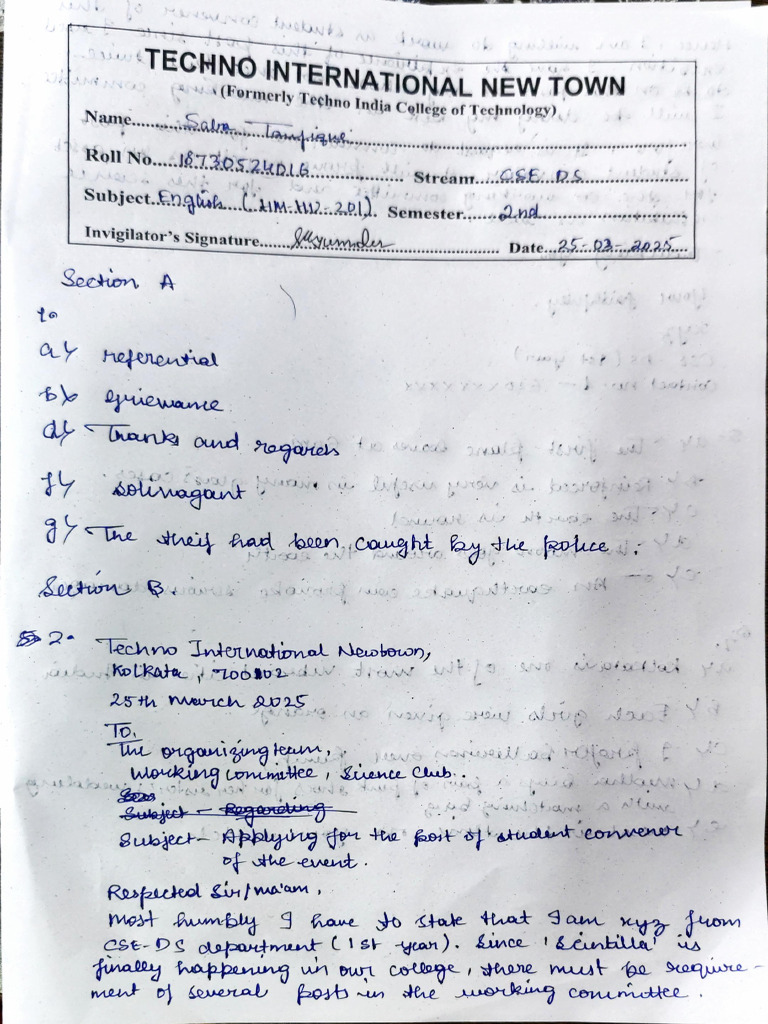 TECHNO INTERNATIONAL NEW TOWN
(Formerly Techno India College of Technology)
Name......Saba Tanfique
Roll No...18730524016 Stream...CSE DS
Subject..English (HM-HU-201). Semester......2nd
Invigilator's Signature...... Date...25-03-2025
Section A
1.
a) referential
b) Grievance
d) Thanks and regards
f) solivagant
g) The theif had been caught by the police.
Section B.
2. Techno International Newtown,
Kolkata, 700102
25th March 2025
To,
The organizing team,
Working committee, Science Club.
Subject - Regarding
Subject- Applying for the post of student convener
of the event.
Respected Sir/ma'am,
Most humbly I have to state that I am xyz from
CSE-DS department (1st year). Since 'Scintilla' is
finally happening in our college, there must be require-
ment of several posts in the working committee.